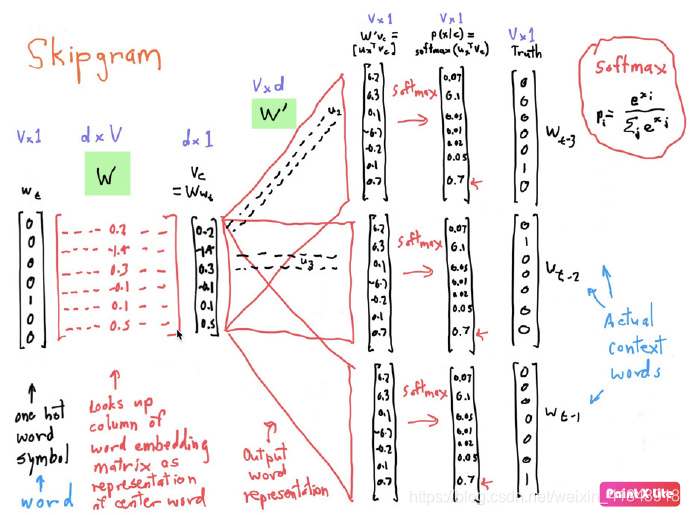 Skipgram
V×1
d×V
d×1
V×d
W
W'
w_t
V_c
= Ww_t
0
0
0
0
1
0
0
0
0.2
-1.4
0.3
-0.1
0.1
0.5
0.2
-1.4
0.3
-0.1
0.1
0.5
u_2
u_3
V×1
W'v_c =
[u_x^T v_c]
V×1
p(x|c) =
softmax(u_x^T v_c)
V×1
Truth
softmax
p_i = e^x_i / Σ_j e^x_j
6.2
6.3
0.1
-6.7
-0.2
0.1
0.7
softmax
0.07
0.1
0.05
0.01
0.02
0.05
0.7
0
0
0
0
0
1
0
W_t-3
6.2
6.3
0.1
-6.7
-0.2
0.1
0.7
softmax
0.07
0.1
0.05
0.01
0.02
0.05
0.7
0
1
0
0
0
0
0
W_t-2
6.2
6.3
0.1
-6.7
-0.2
0.1
0.7
softmax
0.07
0.1
0.05
0.01
0.02
0.05
0.7
0
0
0
0
0
0
1
W_t-1
Actual
context
words
one hot
word
symbol
word
Looks up
column of
word embedding
matrix as
representation
of center word
Output
word
representation
Paint X Lite